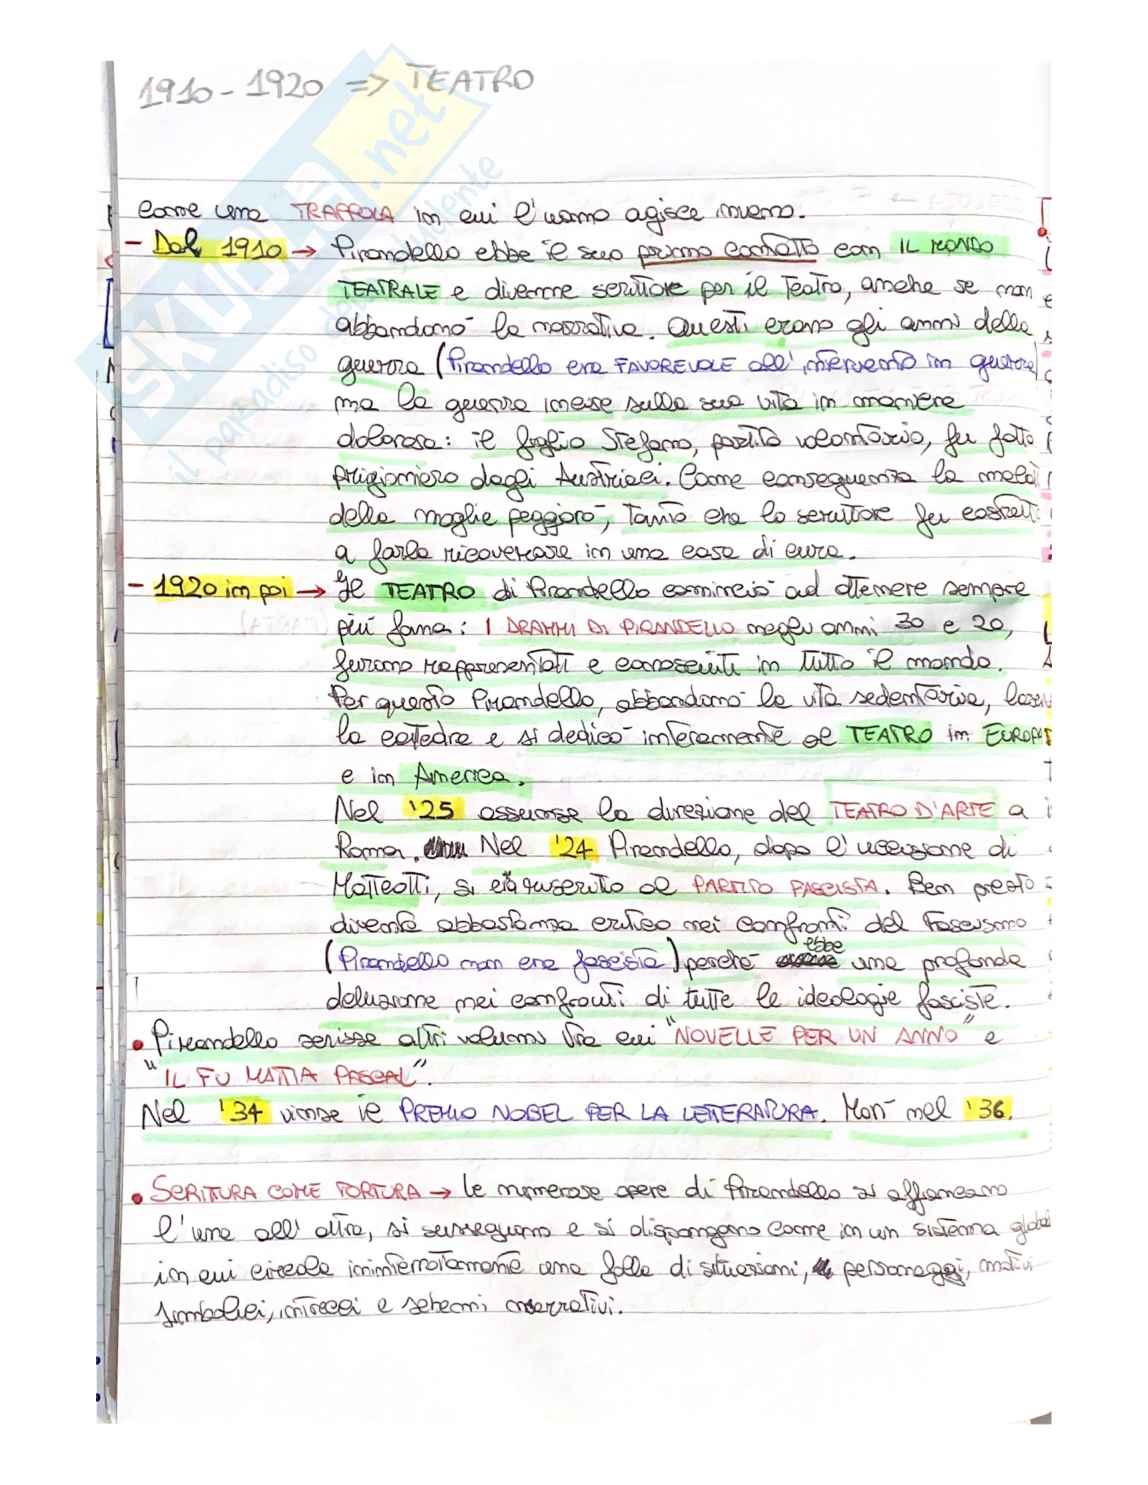 1910 - 1920 => TEATRO
come una TRAPPOLA in cui l'uomo agisce invano.
- Dal 1910 → Pirandello ebbe il suo primo contatto con IL MONDO
TEATRALE e divenne scrittore per il teatro, anche se non
abbandonò la narrativa. Questi erano gli anni della
guerra (Pirandello era FAVOREVOLE all'intervento in guerra)
ma la guerra incise sulla sua vita in maniera
dolorosa: il figlio Stefano, partito volontario, fu fatto
prigioniero dagli Austriaci. Come conseguenza la malat
della moglie peggiorò, tanto che lo scrittore fu costrett
a farla ricoverare in una casa di cura.
- 1920 in poi → Il TEATRO di Pirandello cominciò ad ottenere sempre
più fama: I DRAMMI DI PIRANDELLO negli anni 30 e 20,
furono rappresentati e conosciuti in tutto il mondo.
Per questo Pirandello, abbandonò la vita sedentaria, lasciò
la cattedra e si dedicò interamente al TEATRO in EUROPA
e in America.
Nel '25 assunse la direzione del TEATRO D'ARTE a
Roma. Nel '24 Pirandello, dopo l'uccisione di
Matteotti, si era inserito al PARTITO FASCISTA. Ben presto
diventa abbastanza critico nei confronti del Fascismo
(Pirandello non era fascista) perché ebbe una profonda
delusione nei confronti di tutte le ideologie fasciste.
• Pirandello scrisse altri volumi tra cui "NOVELLE PER UN ANNO" e
"IL FU MATTIA PASCAL".
Nel '34 vinse il PREMIO NOBEL PER LA LETTERATURA. Morì nel '36.
• SCRITTURA COME TORTURA → le numerose opere di Pirandello si affiancano
l'una all'altra, si susseguono e si dispongono come in un sistema global
in cui circola ininterrottamente una folla di situazioni, personaggi, motivi
simbolici, intrecci e schemi narrativi.
SKUOLA.net
il paradiso dello studente